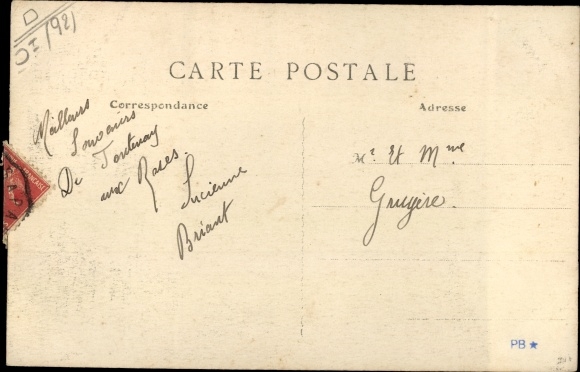 D
(92)
CARTE POSTALE
Correspondance
Adresse
Meilleurs
Souvenirs
De Fontenay
aux Roses.
Lucienne
Briant
Mr et Mme
Gruyère.
PB